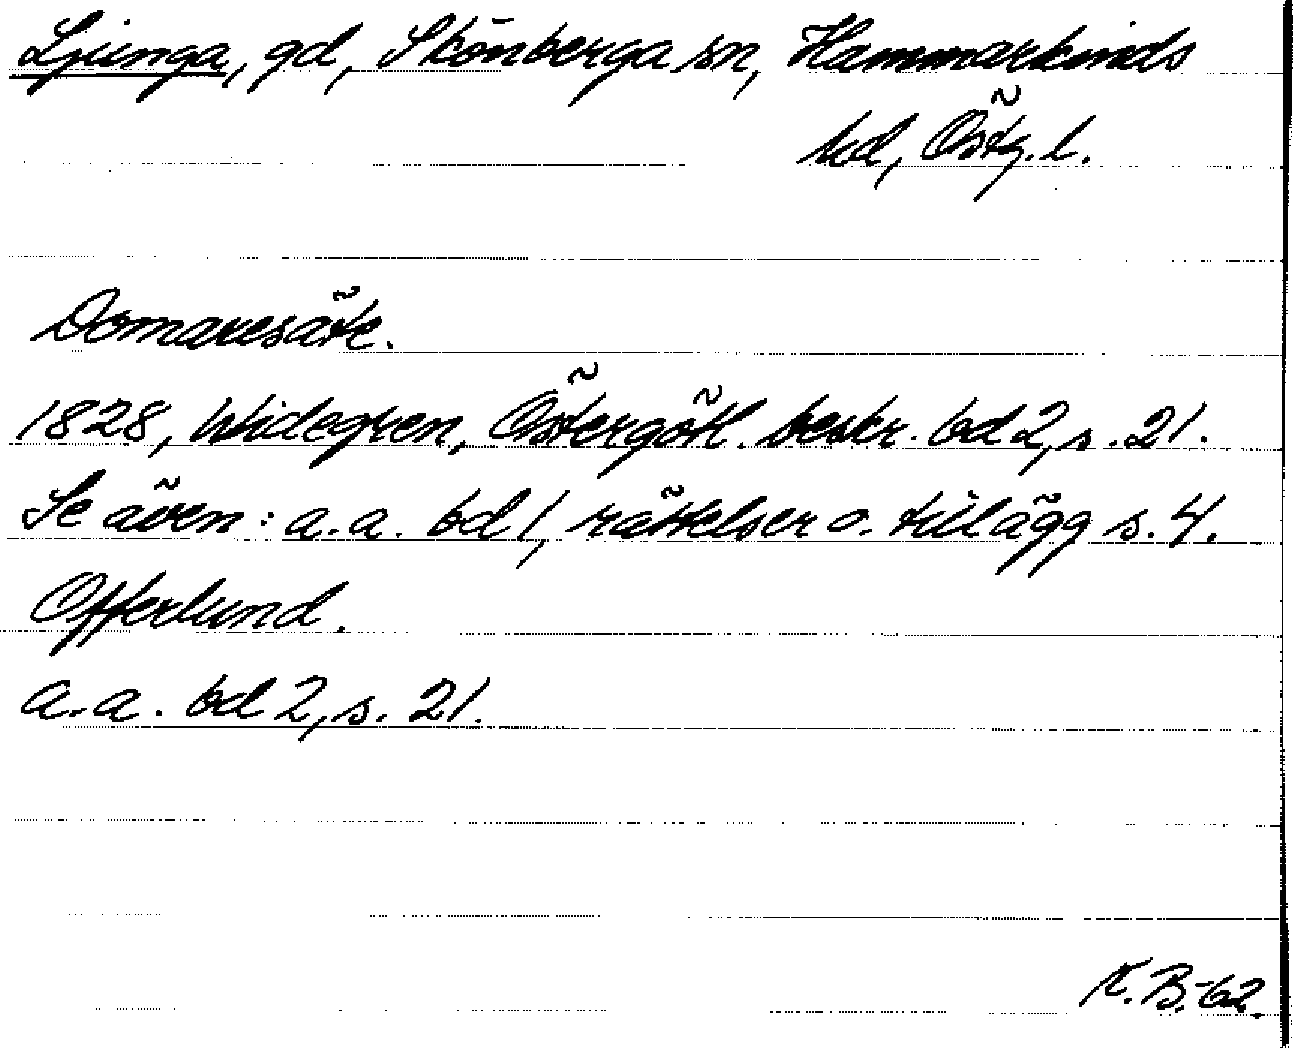 Ljunga, gd, Skönberga sn, Hammarkinds
hd, Östg. l.
Domaresäte.
1828, Widegren, Östergötl. beskr. bd 2, s. 21.
Se även: a.a. bd 1, rättelser o. tillägg s. 4.
Offerlund.
a.a. bd 2, s. 21.
K.B.-62.